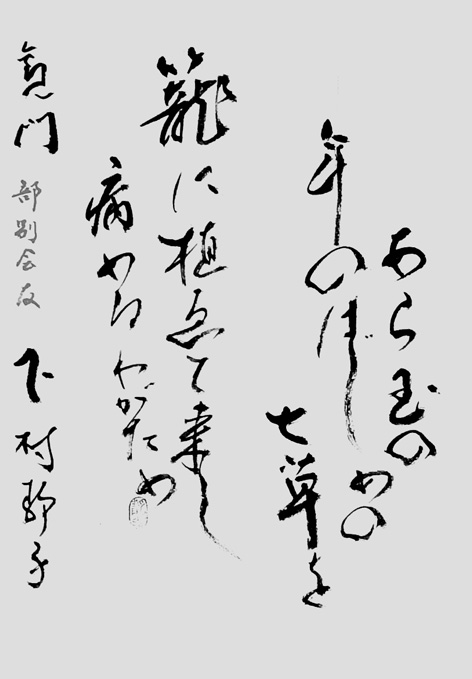 あら玉の
年のはじめの
七草を
籠に植ゑて来し
病めるわがため
部別会友 下村静子